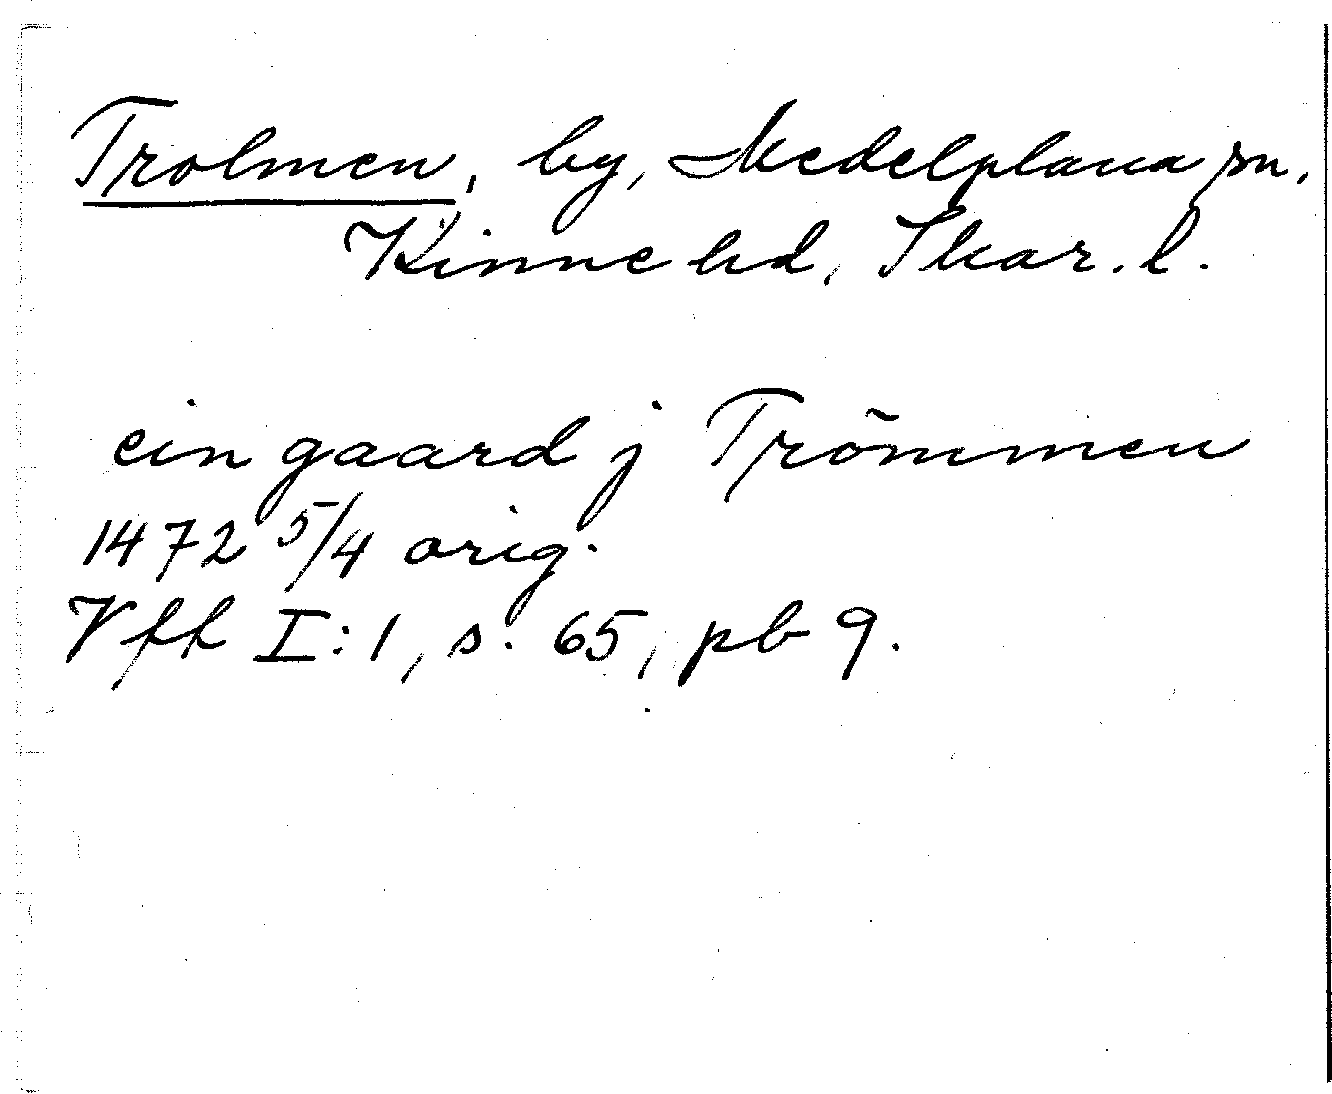 Trolmen, by, Medelplana sn,
Kinne hd, Skar. l.
ein gaard j Trõmmen
1472 5/4 orig.
Vff I:1, s. 65, pb 9.